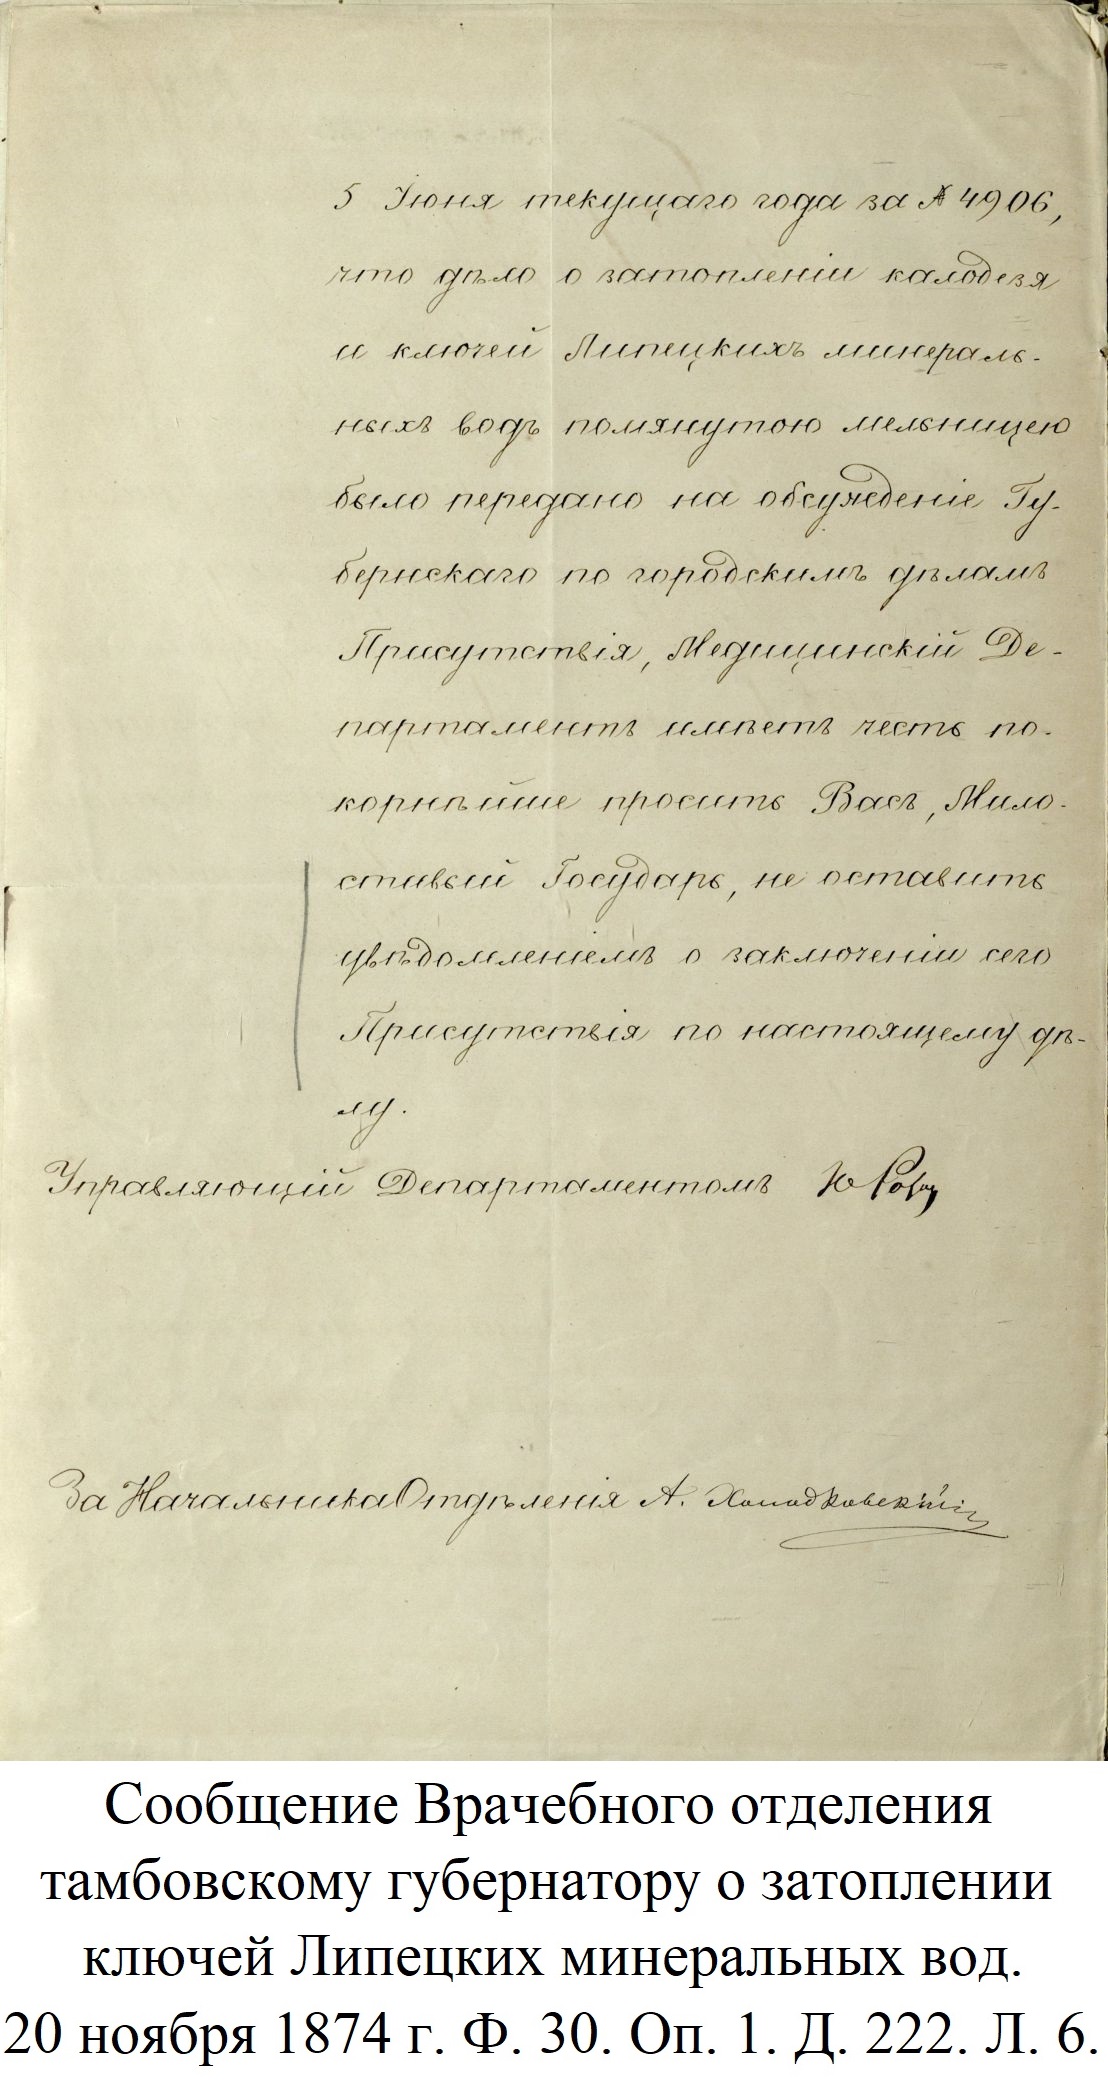 5 Июня текущаго года за № 4906,
что дѣло о затопленіи калодезя
и ключей Липецкихъ минераль-
ныхъ водъ помянутою мельницею
было передано на обсужденіе Гу-
бернскаго по городскимъ дѣламъ
Присутствія, Медицинскій Де-
партаментъ имѣетъ честь по-
корнѣйше просить Васъ, Мило-
стивый Государь, не оставить
увѣдомленіемъ о заключеніи сего
Присутствія по настоящему дѣ-
лу.
Управляющій Департаментомъ
За Начальника Отдѣленія А. Холодковскій
Сообщение Врачебного отделения
тамбовскому губернатору о затоплении
ключей Липецких минеральных вод.
20 ноября 1874 г. Ф. 30. Оп. 1. Д. 222. Л. 6.